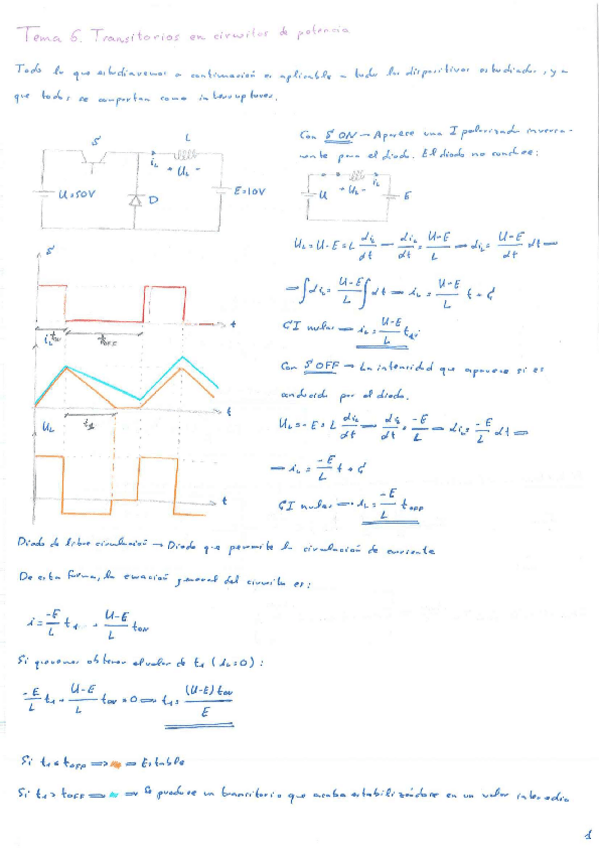 Tema 6. Transitorios en circuitos de potencia
Todo lo que estudiaremos a continuación es aplicable a todos los dispositivos estudiados, ya
que todos se comportan como interruptores.
Con S ON → Aparece una I polarizada inversa-
mente para el diodo. El diodo no conduce:
S
L
iL
+ UL -
U=50V
D
E=10V
+ UL -
iL
U
E
UL = U-E = L diL/dt → diL/dt = U-E/L → diL = U-E/L dt →
→ ∫diL = U-E/L ∫dt → iL = U-E/L t + C
CI nulas → iL = U-E/L ton
Con S OFF → La intensidad que aparece sí es
conducida por el diodo.
UL = -E = L diL/dt → diL/dt = -E/L → diL = -E/L dt →
→ iL = -E/L t + C
CI nulas → iL = -E/L toff
S
t
ton
toff
iL
t
t1
UL
t
Diodo de libre circulación → Diodo que permite la circulación de corriente
De esta forma, la ecuación general del circuito es:
i = -E/L t1 + U-E/L ton
Si queremos obtener el valor de t1 (iL=0):
-E/L t1 + U-E/L ton = 0 → t1 = (U-E) ton/E
Si t1 < toff → → Estable
Si t1 > toff → → Se produce un transitorio que acaba estabilizándose en un valor intermedio
1